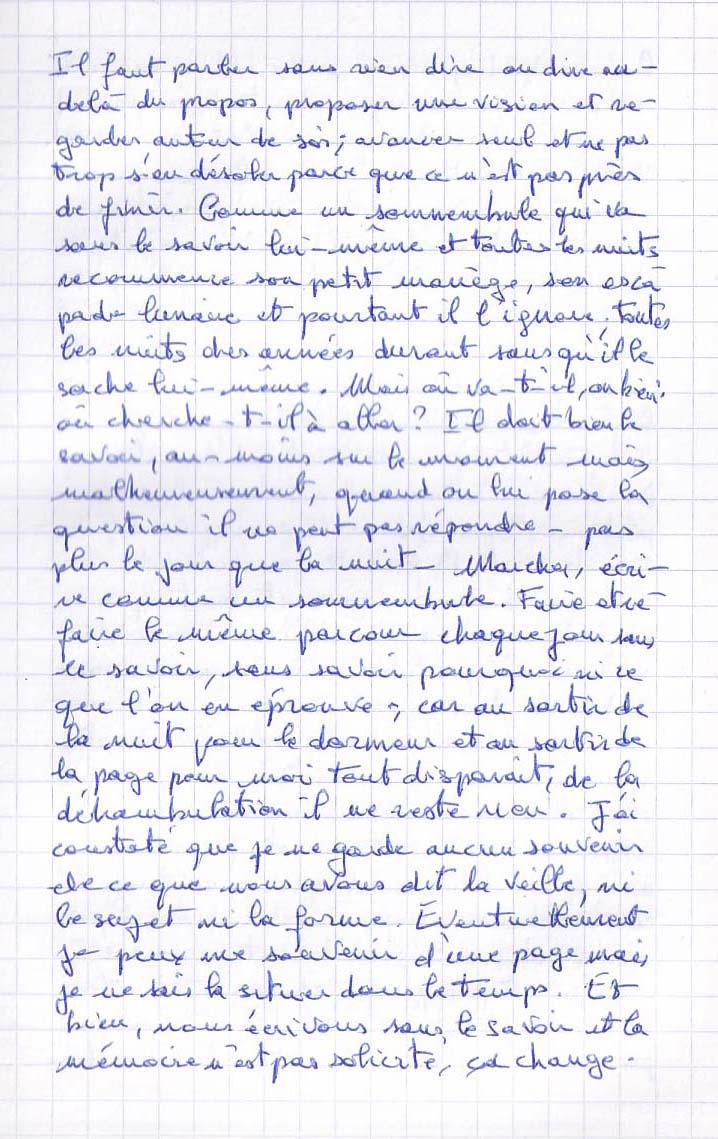 Il faut parler sans rien dire ou dire au-
delà du propos, proposer une vision et re-
garder autour de soi ; avancer seul et ne pas
trop s'en désoler parce que ce n'est pas près
de finir. Comme un somnembule qui va
sans le savoir lui-même et toutes les nuits
recommence son petit manège, son esca
pade lunaire et pourtant il l'ignore, toutes
les nuits des années durant sans qu'il le
sache lui-même. Mais où va-t-il, ou bien
où cherche-t-il à aller ? Il doit bien le
savoir, au-moins sur le moment mais
malheureusement, quand on lui pose la
question il ne peut pas répondre - pas
plus le jour que la nuit - Marcher, écri-
re comme un somnembule. Faire et re-
faire le même parcour chaque jour sans
le savoir, sans savoir pourquoi ni ce
que l'on en éprouve ; car au sortir de
la nuit pour le dormeur et au sortir de
la page pour moi tout disparaît, de la
déhambulation il ne reste rien. J'ai
constaté que je ne garde aucun souvenir
de ce que nous avons dit la veille, ni
le sujet ni la forme. Eventuellement
je peux me souvenir d'une page mais
je ne sais la situer dans le temps. Et
bien, nous écrivons sans le savoir et la
mémoire n'est pas solicité, ça change.